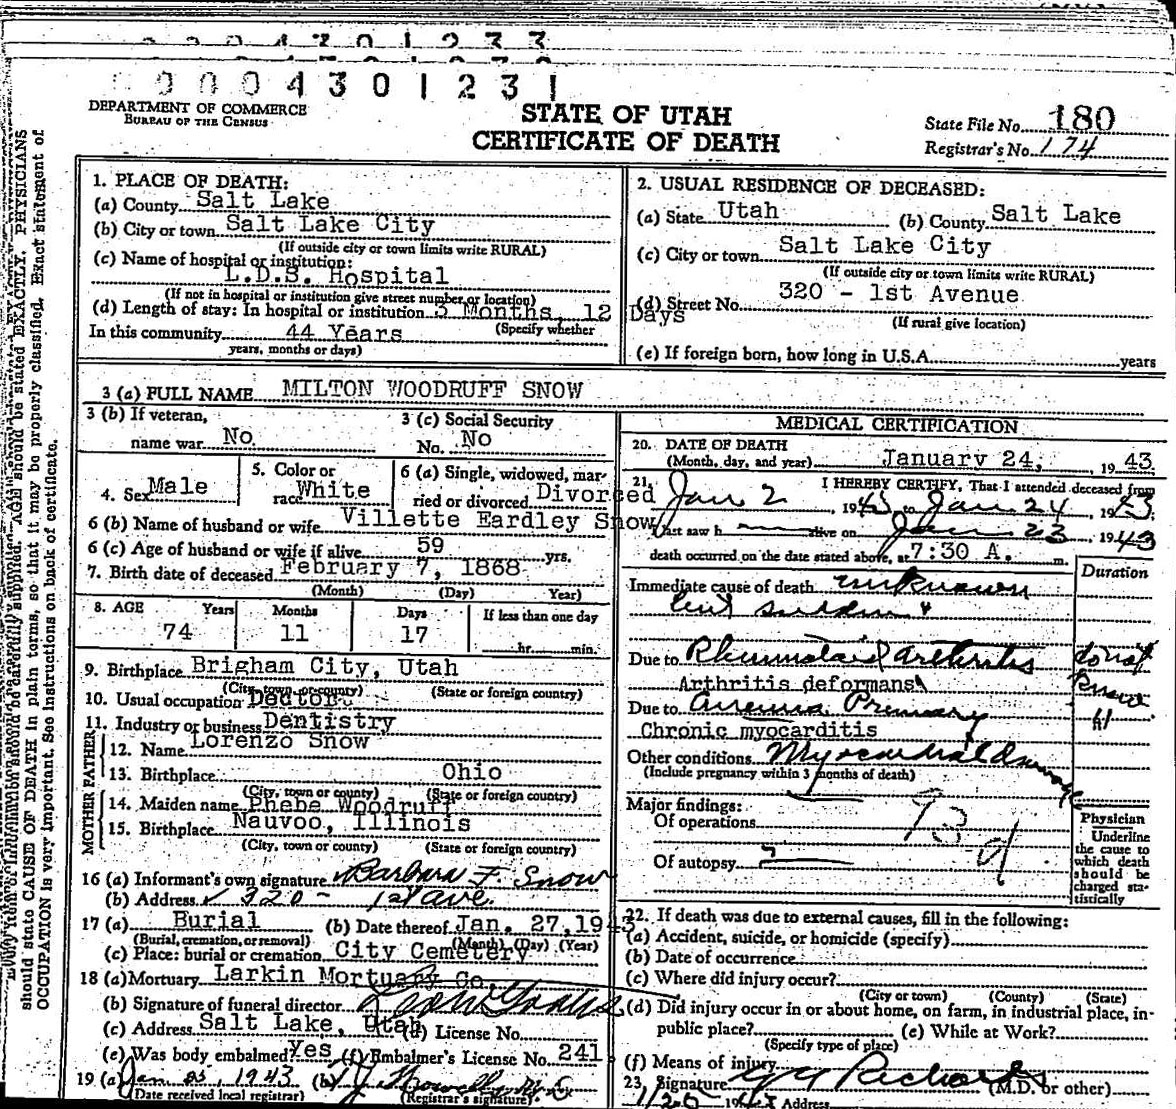 0004301231
DEPARTMENT OF COMMERCE
BUREAU OF THE CENSUS
STATE OF UTAH
CERTIFICATE OF DEATH
State File No. 180
Registrar's No. 174
1. PLACE OF DEATH:
(a) County Salt Lake
(b) City or town Salt Lake City
(If outside city or town limits write RURAL)
(c) Name of hospital or institution:
L.D.S. Hospital
(If not in hospital or institution give street number or location)
(d) Length of stay: In hospital or institution 3 Months, 12 Days
(Specify whether
In this community 44 Years
years, months or days)
2. USUAL RESIDENCE OF DECEASED:
(a) State Utah (b) County Salt Lake
(c) City or town Salt Lake City
(If outside city or town limits write RURAL)
(d) Street No. 320 - 1st Avenue
(If rural give location)
(e) If foreign born, how long in U.S.A. years
3 (a) FULL NAME MILTON WOODRUFF SNOW
3 (b) If veteran,
name war No
3 (c) Social Security
No. No
4. Sex Male
5. Color or
race White
6 (a) Single, widowed, mar-
ried or divorced Divorced
6 (b) Name of husband or wife Villette Eardley Snow
6 (c) Age of husband or wife if alive 59 yrs.
7. Birth date of deceased February 7, 1868
(Month) (Day) Year)
8. AGE Years Months Days If less than one day
74 11 17
hr. min.
9. Birthplace Brigham City, Utah
(City, town or county) (State or foreign country)
10. Usual occupation Doctor
11. Industry or business Dentistry
FATHER
12. Name Lorenzo Snow
13. Birthplace Ohio
(City, town or county) (State or foreign country)
MOTHER
14. Maiden name Phebe Woodruff
15. Birthplace Nauvoo, Illinois
(City, town or county) (State or foreign country)
16 (a) Informant's own signature Barbara F. Snow
(b) Address 320 - 1st Ave.
17 (a) Burial (b) Date thereof Jan. 27, 1943
(Burial, cremation, or removal) (Month) (Day) (Year)
(c) Place: burial or cremation City Cemetery
18 (a) Mortuary Larkin Mortuary Co.
(b) Signature of funeral director
(c) Address Salt Lake, Utah (d) License No.
(e) Was body embalmed? Yes (f) Embalmer's License No. 241
19 (a) Jan 25, 1943 (b)
(Date received local registrar) (Registrar's signature)
MEDICAL CERTIFICATION
20. DATE OF DEATH
(Month, day, and year) January 24, 1943.
21. I HEREBY CERTIFY, That I attended deceased from
Jan 2 1943 to Jan 24 1943;
last saw h alive on Jan 23 1943
death occurred on the date stated above, at 7:30 A. m.
Duration
Immediate cause of death unknown
but sudden
Due to Rheumatoid arthritis do not
Arthritis deformans know
Due to Anemia Primary
Chronic myocarditis
Other conditions Myocardial Damage
(Include pregnancy within 3 months of death)
Major findings:
Of operations
93-d
Of autopsy
Physician
Underline
the cause to
which death
should be
charged sta-
tistically
22. If death was due to external causes, fill in the following:
(a) Accident, suicide, or homicide (specify)
(b) Date of occurrence
(c) Where did injury occur?
(City or town) (County) (State)
(d) Did injury occur in or about home, on farm, in industrial place, in-
public place? (e) While at Work?
(Specify type of place)
(f) Means of injury
23. Signature G G Richards (M.D. or other)
1/25 1943 Address
AGE should be stated EXACTLY. PHYSICIANS
should state CAUSE OF DEATH in plain terms, so that it may be properly classified. Exact statement of
OCCUPATION is very important. See instructions on back of certificate.